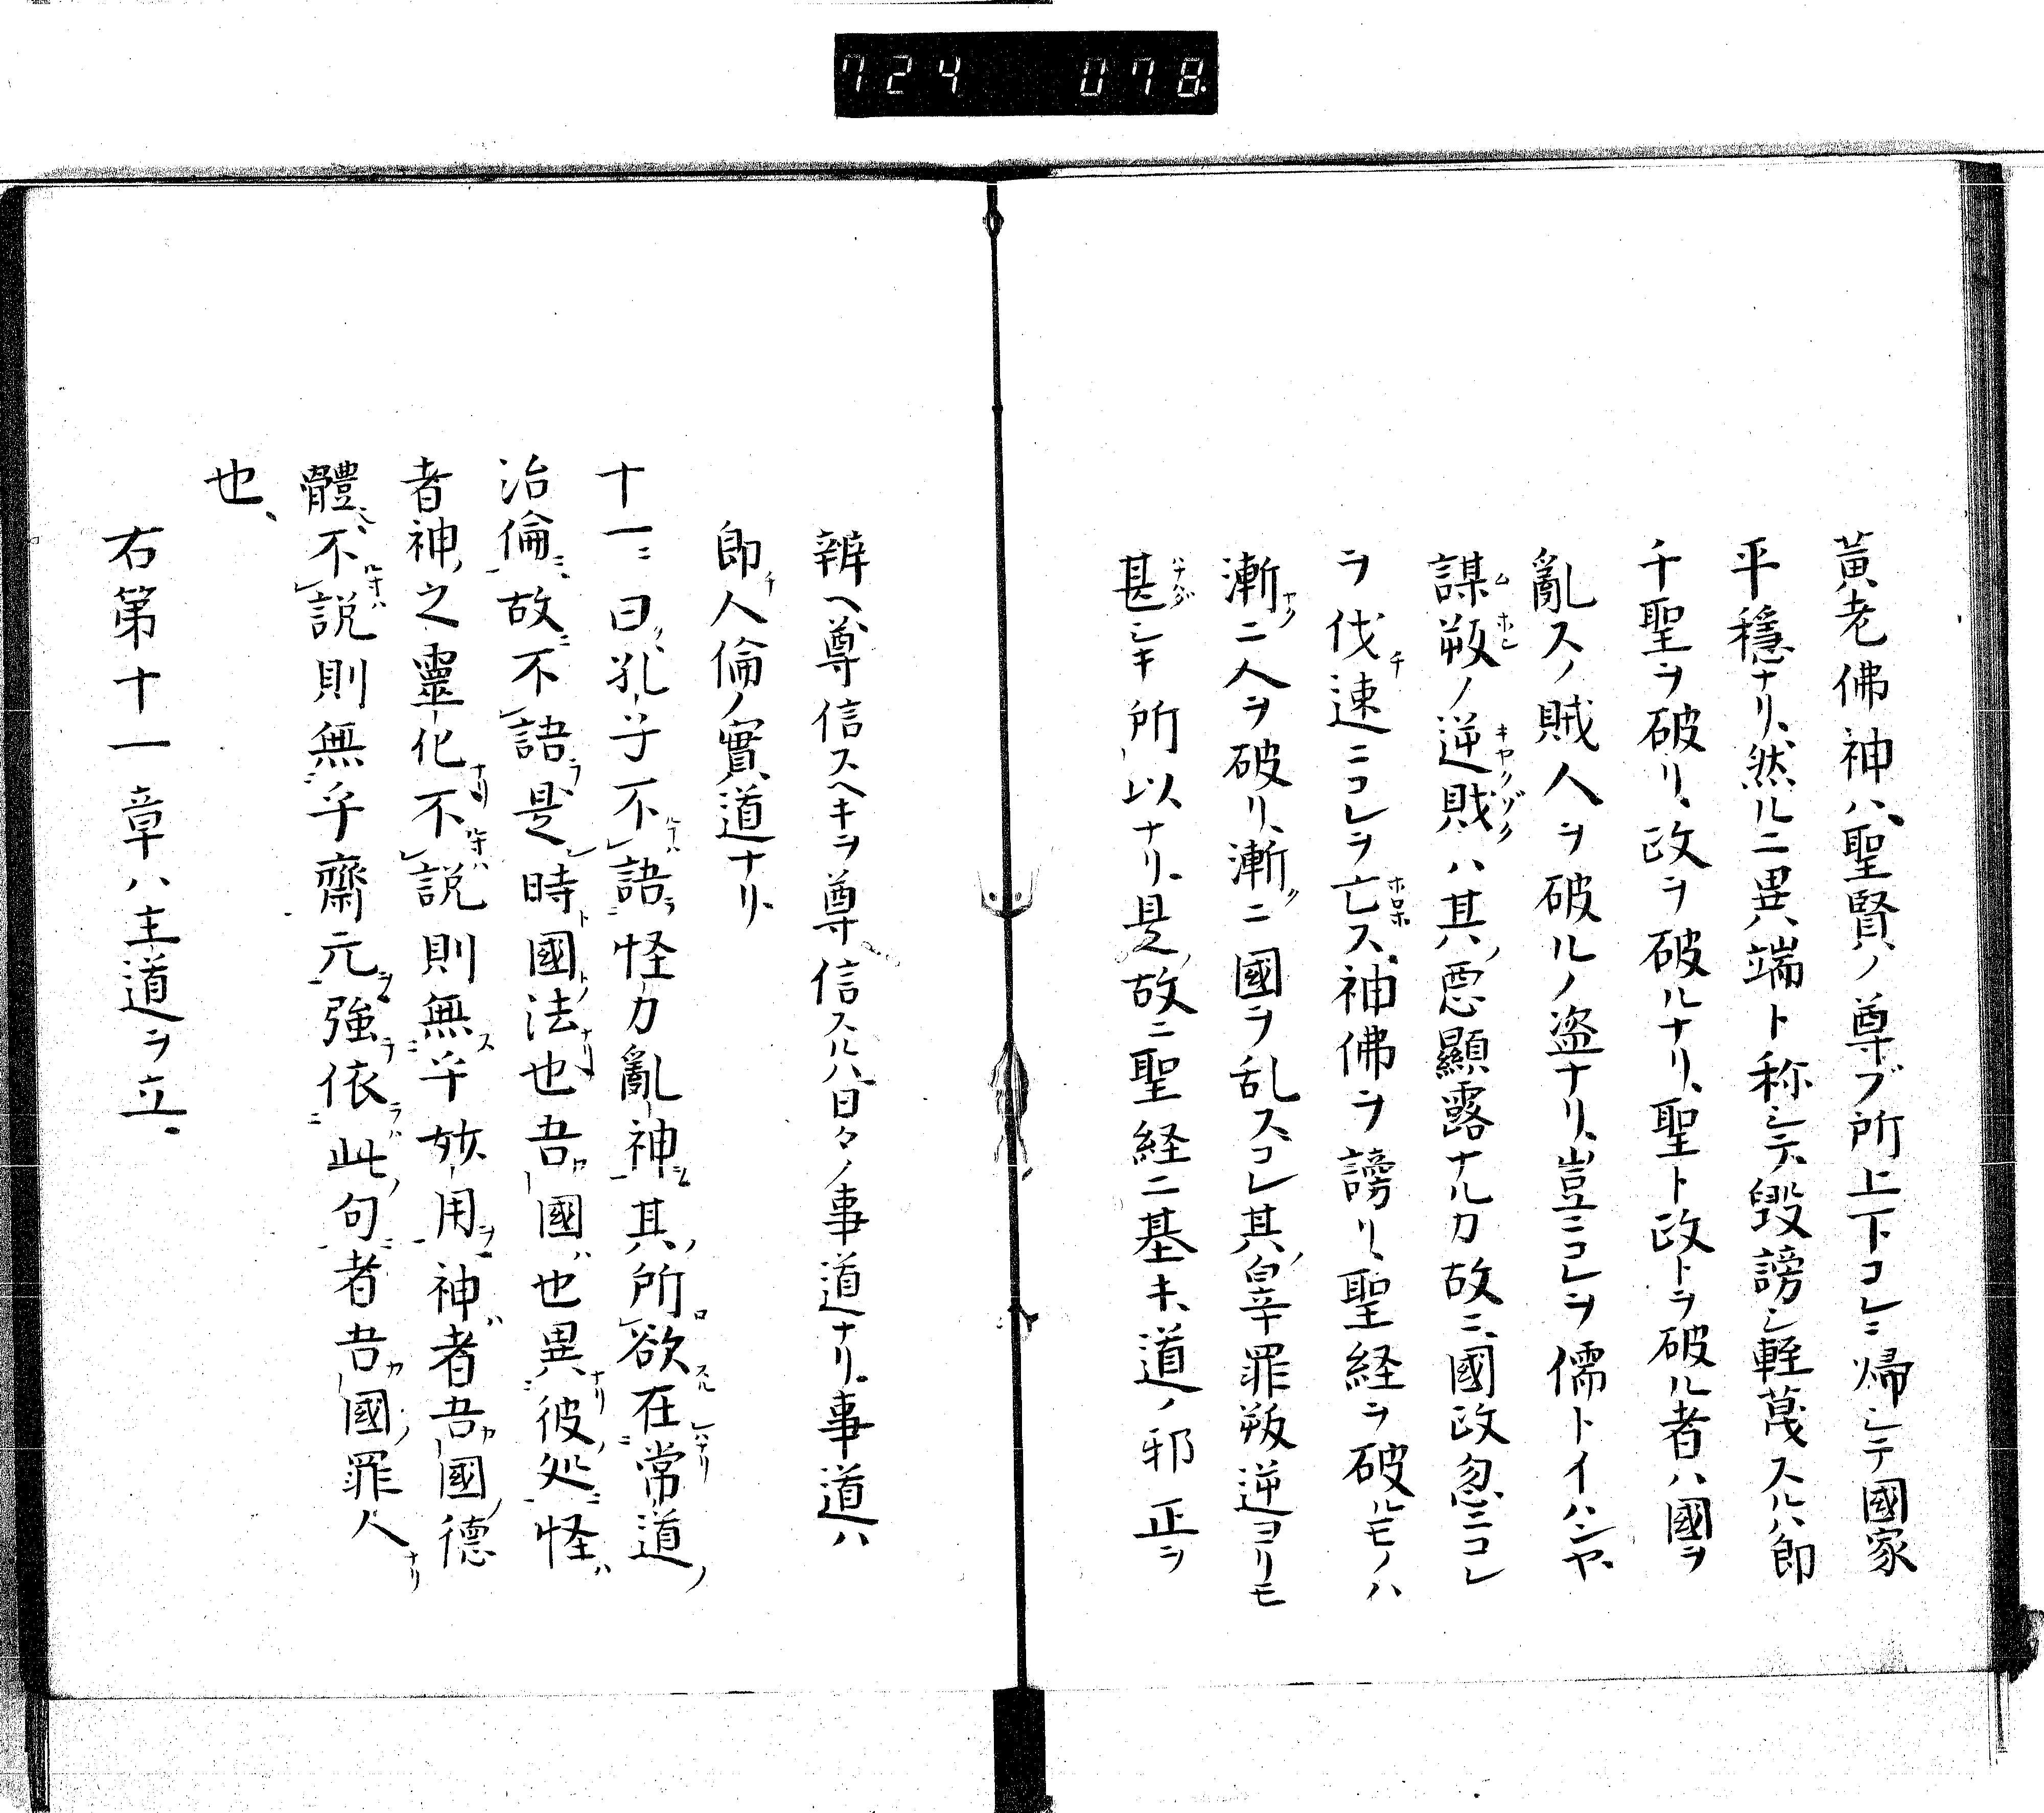 724 078
黃老佛神ハ、聖賢ノ尊ブ所上下コレニ帰シテ國家
平穩ナリ、然ルニ異端ト称シテ、毀謗シ輕蔑スルハ即
千聖ヲ破リ、政ヲ破ルナリ、聖ト政トヲ破ル者ハ國ヲ
亂スノ賊人ヲ破ルノ盗ナリ、豈ニコレヲ儒トイハンヤ、
謀叛ノ逆賊ハ其ノ悪顯露ナルカ故ニ、國政忽ニコレ
ヲ伐チ速ニコレヲ亡ス、神佛ヲ謗リ、聖経ヲ破ルモノハ
漸ニ人ヲ破リ、漸ク二國ヲ乱ス、コレ其ノ辠罪叛逆ヨリモ
甚シキ所以ナリ、是ノ故ニ聖経ニ基キ、道ノ邪正ヲ
辨ヘ尊信スヘキヲ尊信スルハ日々ノ事道ナリ、事道ハ
即チ人倫ノ實道ナリ、
十一ニ曰ク、孔子不語怪力亂神其ノ所欲在常道ノ
治倫ニ、故ニ不語是時國法也吾國ハ也異彼処ニ怪ハ
者神ノ之靈化不說則無乎妙用神者吾國ノ德
體不說則無乎齋元強依此ノ句者吾國ノ罪人ナリ
也、
右第十一章ハ主道ヲ立、